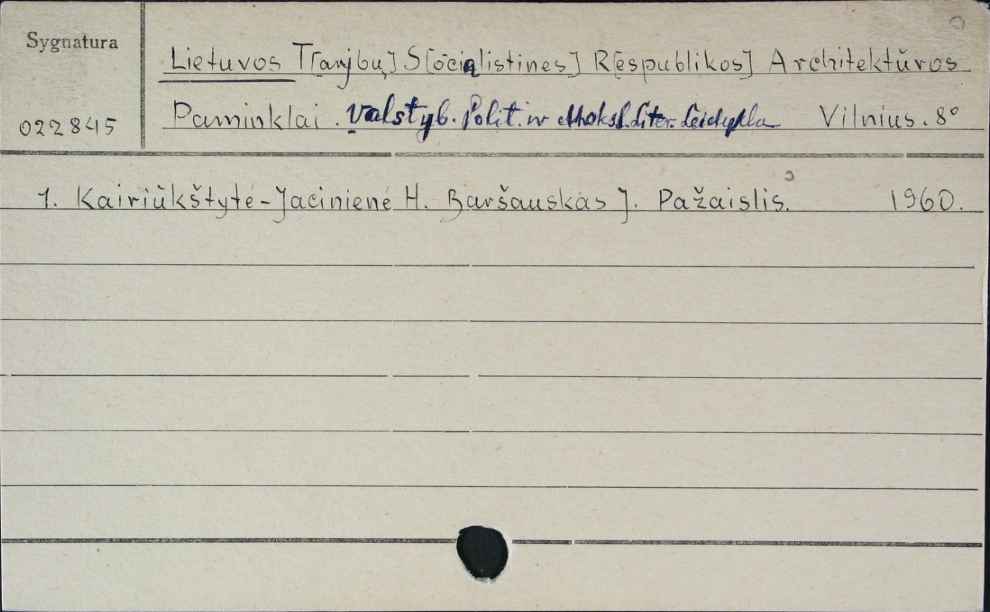 Sygnatura
Lietuvos T[arybų] S[ocialistines] R[espublikos] Architektūros
022845 Paminklai. Valstyb. Polit. ir Moksl. Liter. Leidykla Vilnius. 8°
1. Kairiūkštytė-Jacinienė H. Baršauskas J. Pažaislis. 1960.